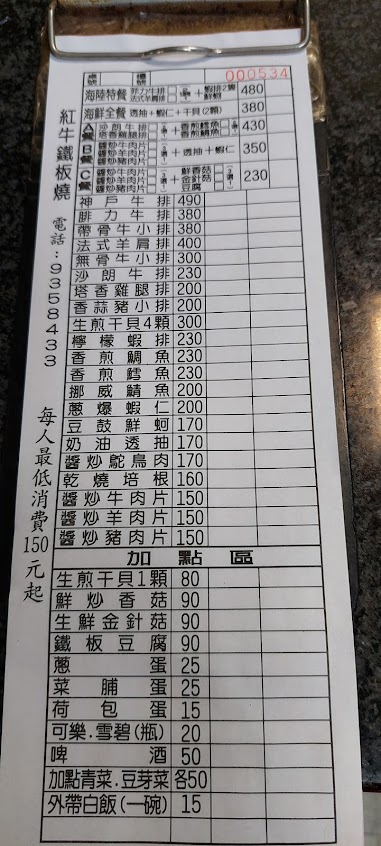 桌號 檯號 000534
海陸特餐 菲力牛排 法式羊肩排 + 蝦排2隻 鮮蚵 480
海鮮全餐 透抽+蝦仁+干貝(2顆) 380
A餐 沙朗牛排 塔香雞腿排 + 香煎鱈魚 香煎鯛魚 430
B餐 醬炒牛肉片 醬炒羊肉片 醬炒豬肉片 +透抽+蝦仁 350
C餐 醬炒牛肉片 醬炒羊肉片 醬炒豬肉片 + 鮮香菇 金針菇 豆腐 230
神戶牛排 490
腓力牛排 380
帶骨牛小排 380
法式羊肩排 400
無骨牛小排 300
沙朗牛排 230
塔香雞腿排 200
香蒜豬小排 200
生煎干貝4顆 300
檸檬蝦排 230
香煎鯛魚 230
香煎鱈魚 230
挪威鯖魚 200
蔥爆蝦仁 200
豆鼓鮮蚵 170
奶油透抽 170
醬炒鴕鳥肉 170
乾燒培根 160
醬炒牛肉片 150
醬炒羊肉片 150
醬炒豬肉片 150
加點區
生煎干貝1顆 80
鮮炒香菇 90
生鮮金針菇 90
鐵板豆腐 90
蔥蛋 25
菜脯蛋 25
荷包蛋 15
可樂.雪碧(瓶) 20
啤酒 50
加點青菜.豆芽菜 各50
外帶白飯(一碗) 15
紅牛鐵板燒 電話:9358433
每人最低消費150元起